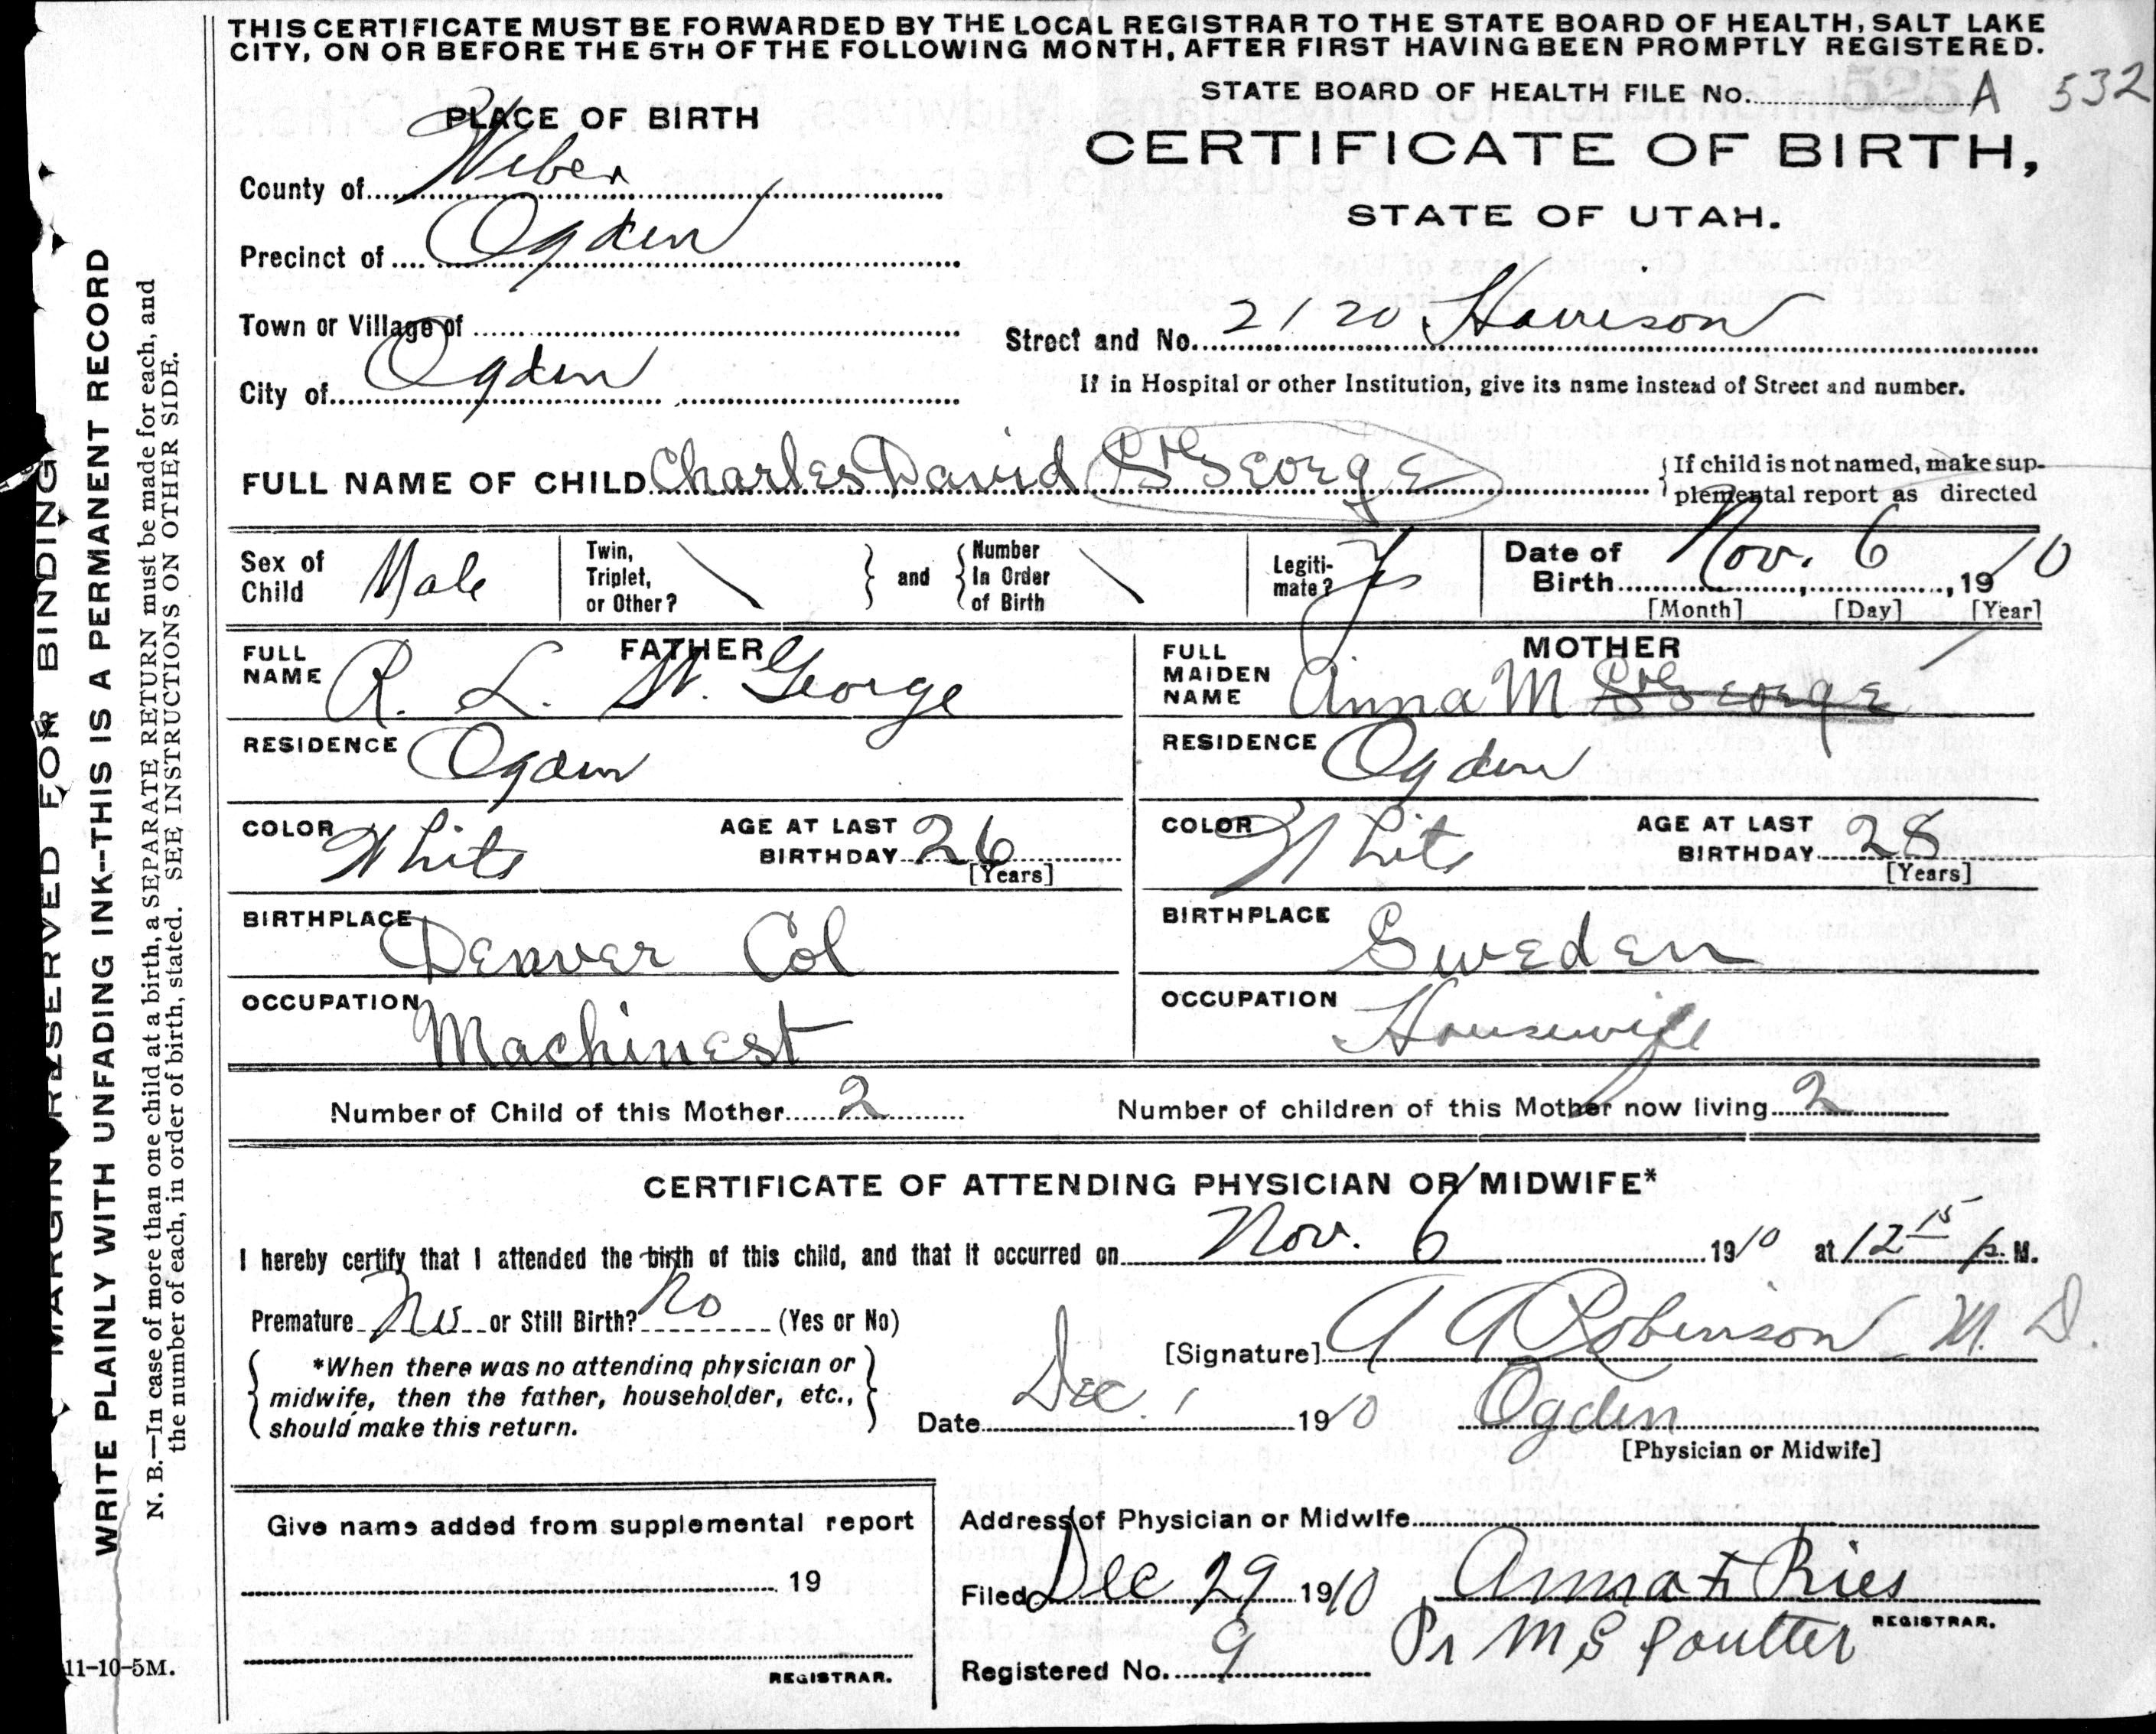 THIS CERTIFICATE MUST BE FORWARDED BY THE LOCAL REGISTRAR TO THE STATE BOARD OF HEALTH, SALT LAKE
CITY, ON OR BEFORE THE 5TH OF THE FOLLOWING MONTH, AFTER FIRST HAVING BEEN PROMPTLY REGISTERED.
STATE BOARD OF HEALTH FILE No. A 532
PLACE OF BIRTH
CERTIFICATE OF BIRTH,
STATE OF UTAH.
County of Weber
Precinct of Ogden
Town or Village of
Street and No. 2120 Harrison
City of Ogden
If in Hospital or other Institution, give its name instead of Street and number.
FULL NAME OF CHILD Charles David St George
If child is not named, make sup-
plemental report as directed
Sex of Child Male
Twin, Triplet, or Other?
and
Number In Order of Birth
Legiti-mate? Yes
Date of Birth Nov. 6, 1910
[Month] [Day] [Year]
FATHER
FULL NAME R. L. St. George
RESIDENCE Ogden
COLOR White
AGE AT LAST BIRTHDAY 26
[Years]
BIRTHPLACE Denver Col
OCCUPATION Machinest
MOTHER
FULL MAIDEN NAME Anna M St George
RESIDENCE Ogden
COLOR White
AGE AT LAST BIRTHDAY 28
[Years]
BIRTHPLACE Sweden
OCCUPATION Housewife
Number of Child of this Mother 2
Number of children of this Mother now living 2
CERTIFICATE OF ATTENDING PHYSICIAN OR MIDWIFE*
I hereby certify that I attended the birth of this child, and that it occurred on Nov. 6 1910 at 12 15 p. M.
Premature No or Still Birth? No (Yes or No)
[Signature] A A Robinson M. D.
*When there was no attending physician or
midwife, then the father, householder, etc.,
should make this return.
Date Dec. 1 1910 Ogden
[Physician or Midwife]
Give name added from supplemental report
19
REGISTRAR.
Address of Physician or Midwife
Filed Dec 29 1910 Anna F Ries
REGISTRAR.
Pr M S Poulter
Registered No. 9
11-10-5M.
MARGIN RESERVED FOR BINDING
WRITE PLAINLY WITH UNFADING INK--THIS IS A PERMANENT RECORD
N. B.—In case of more than one child at a birth, a SEPARATE RETURN must be made for each, and
the number of each, in order of birth, stated. SEE INSTRUCTIONS ON OTHER SIDE.